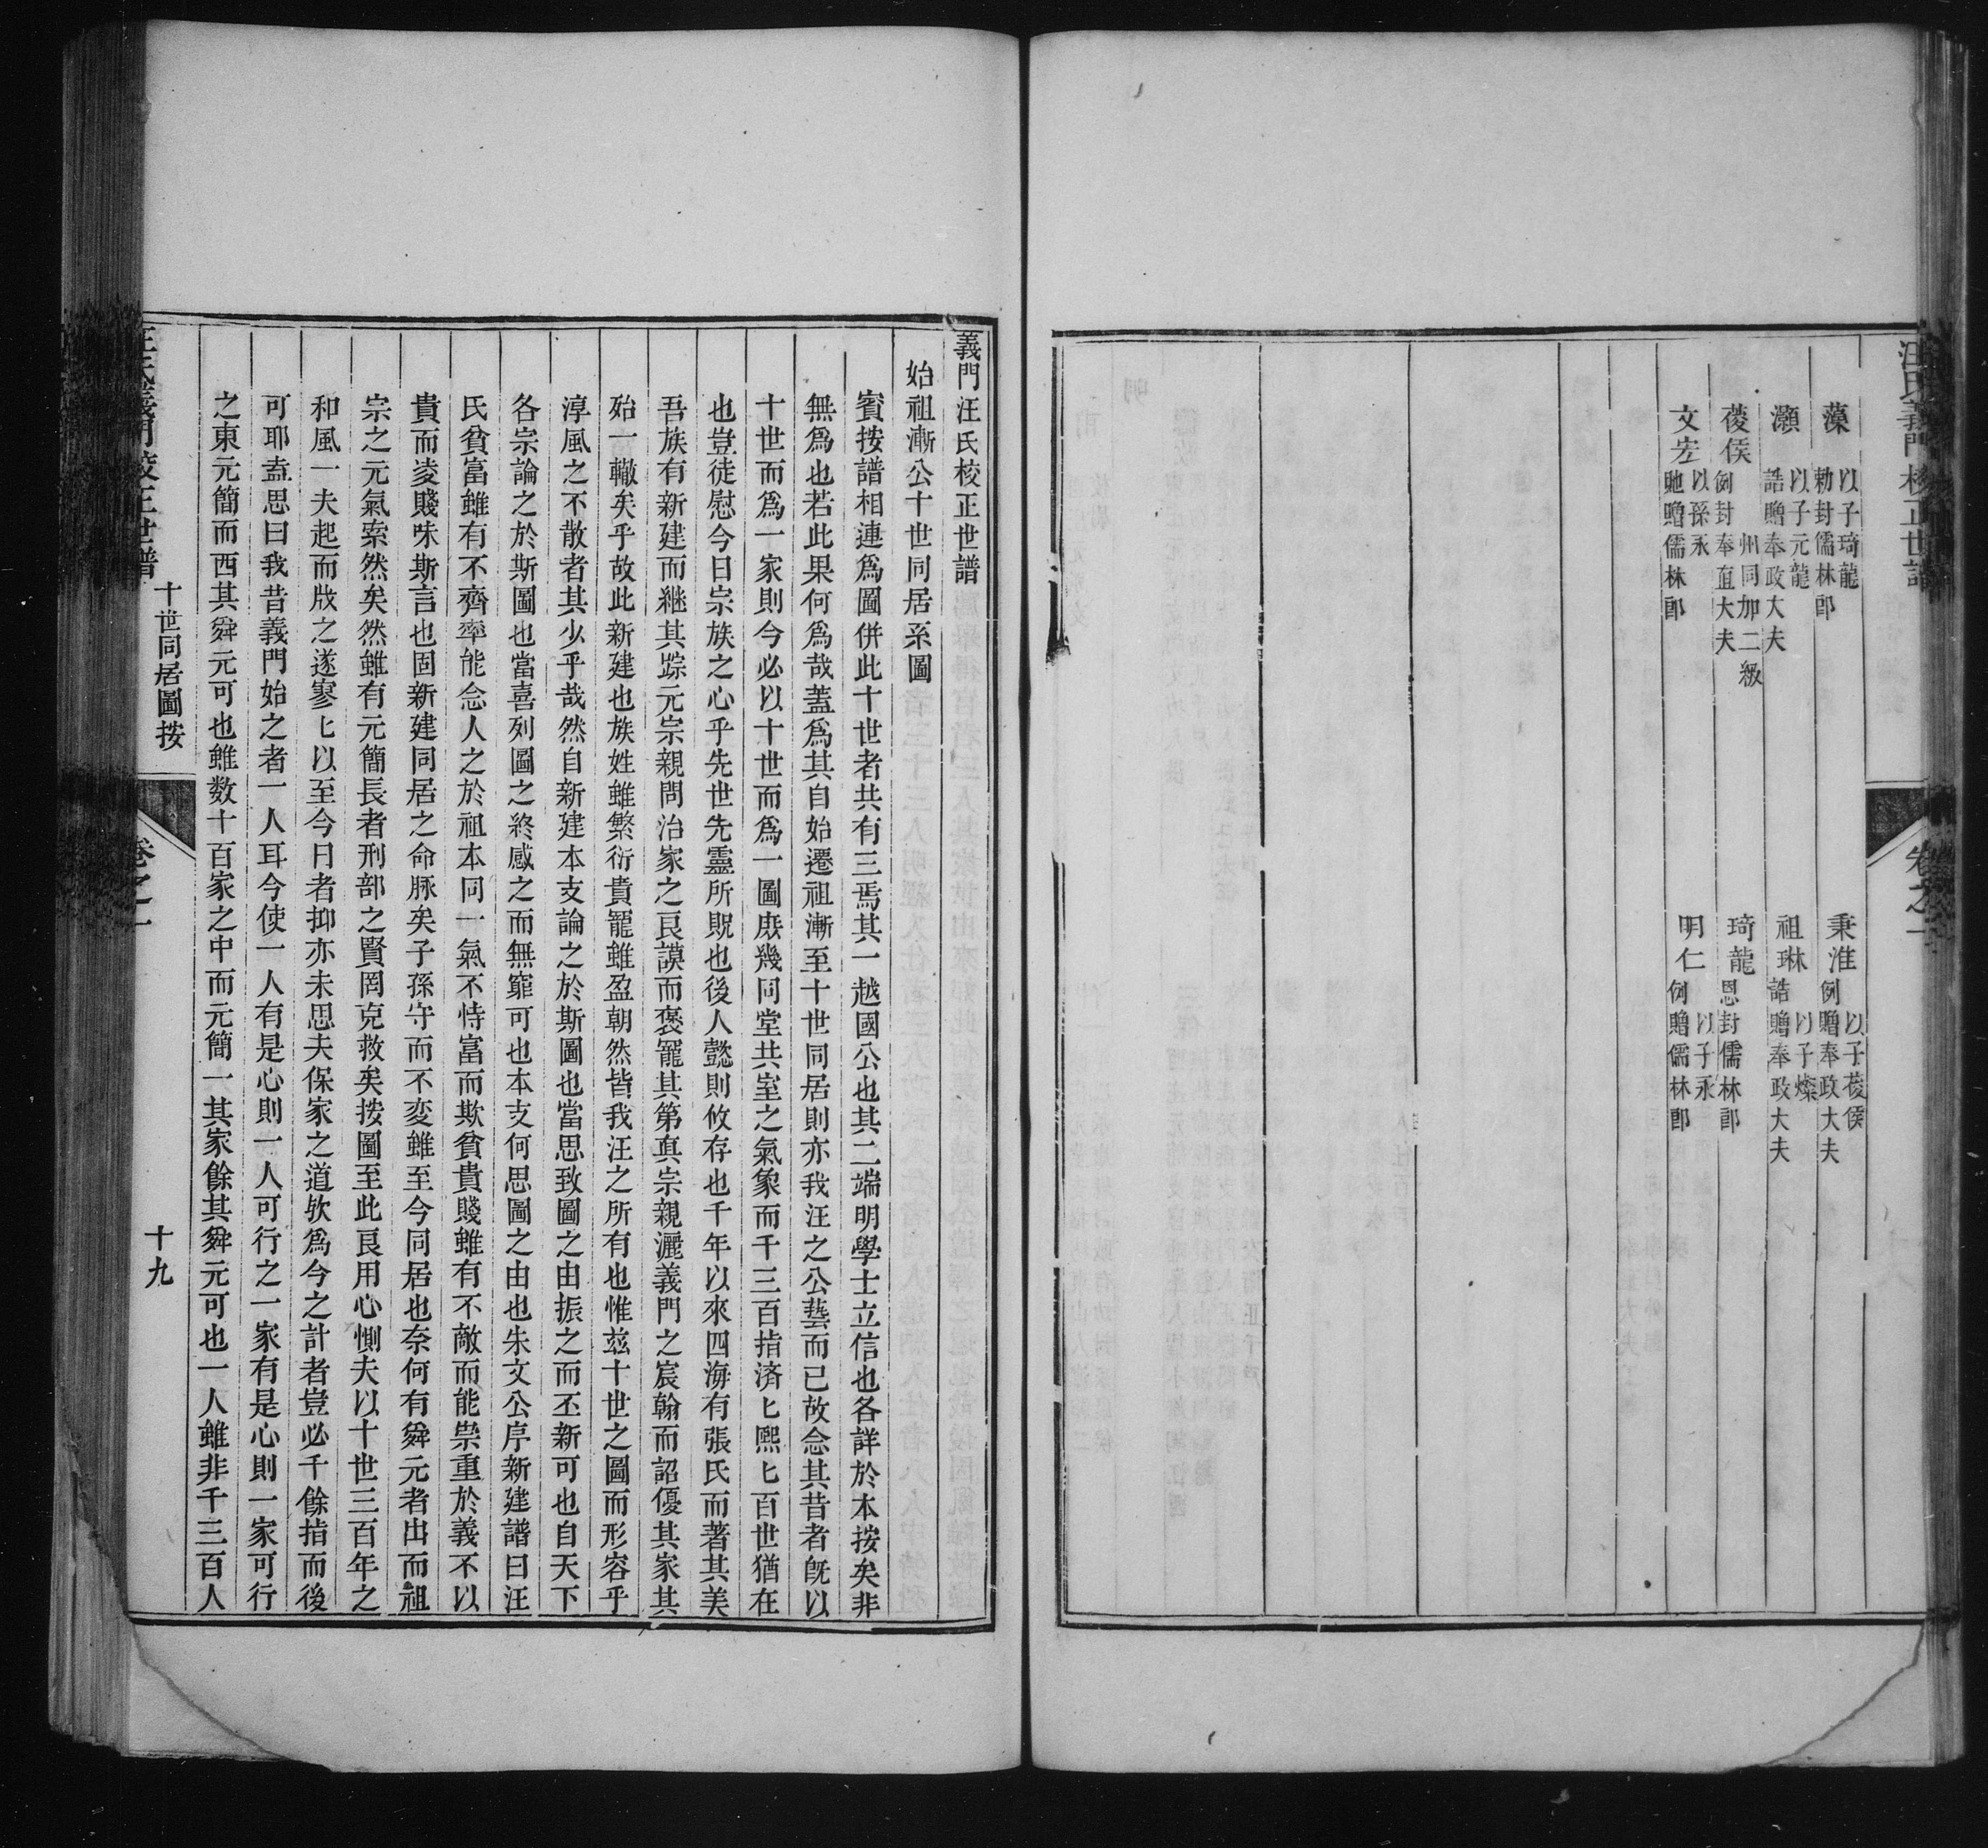 汪氏義門校正世譜
卷之一
藻 以子琦龍勅封儒林郎
秉淮 以子葰侯例贈奉政大夫
灝 以子元龍誥贈奉政大夫
祖琳 以子燦誥贈奉政大夫
葰侯 州同加二級例封奉直大夫
琦龍 恩封儒林郎
文宏 以孫永貤贈儒林郎
明仁 以子永例贈儒林郎
義門汪氏校正世譜
始祖漸公十世同居系圖
賓按譜相連爲圖併此十世者共有三焉其一越國公也其二端明學士立信也各詳於本按矣非
無爲也若此果何爲哉蓋爲其自始遷祖漸至十世同居則亦我汪之公藝而已故念其昔者旣以
十世而爲一家則今必以十世而爲一圖庻幾同堂共室之氣象而千三百指済匕熈匕百世猶在
也豈徒慰今日宗族之心乎先世先靈所貺也後人懿則攸存也千年以來四海有張氏而著其美
吾族有新建而継其踪元宗親問治家之良謨而褒寵其第真宗親灑義門之宸翰而詔優其家其
殆一轍矣乎故此新建也族姓雖繁衍貴寵雖盈朝然皆我汪之所有也惟兹十世之圖而形容乎
淳風之不散者其少乎哉然自新建本支論之於斯圖也當思致圖之由振之而丕新可也自天下
各宗論之於斯圖也當喜列圖之終感之而無窮可也本支何思圖之由也朱文公序新建譜曰汪
氏貧富雖有不齊率能念人之於祖本同一氣不恃富而欺貧貴賤雖有不敵而能崇重於義不以
貴而凌賤味斯言也固新建同居之命脉矣子孫守而不変雖至今同居也奈何有舜元者出而祖
宗之元氣索然矣然雖有元簡長者刑部之賢罔克救矣按圖至此良用心惻夫以十世三百年之
和風一夫起而戕之遂寥匕以至今日者抑亦未思夫保家之道欤爲今之計者豈必千餘指而後
可耶盍思曰我昔義門始之者一人耳今使一人有是心則一人可行之一家有是心則一家可行
之東元簡而西其舜元可也雖数十百家之中而元簡一其家餘其舜元可也一人雖非千三百人
汪氏義門校正世譜
十世同居圖按
卷之一
十九